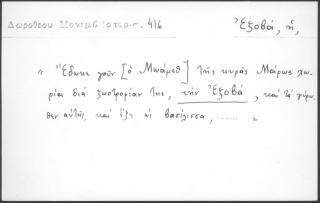 Δωροθέου Μονεμβ. Ἱστορ. σ. 416
Ἐξοβά, ἡ,
« Ἔδωκε γοῦν [ὁ Μωάμεθ] τῆς κυρᾶς Μάρως χω-
ρία διὰ ζωοτροφίαν της, τὴν Ἐξοβά, καὶ τὰ γύρω-
θεν αὐτῆς, καὶ ἔζη ὡς βασίλισσα, ...... »